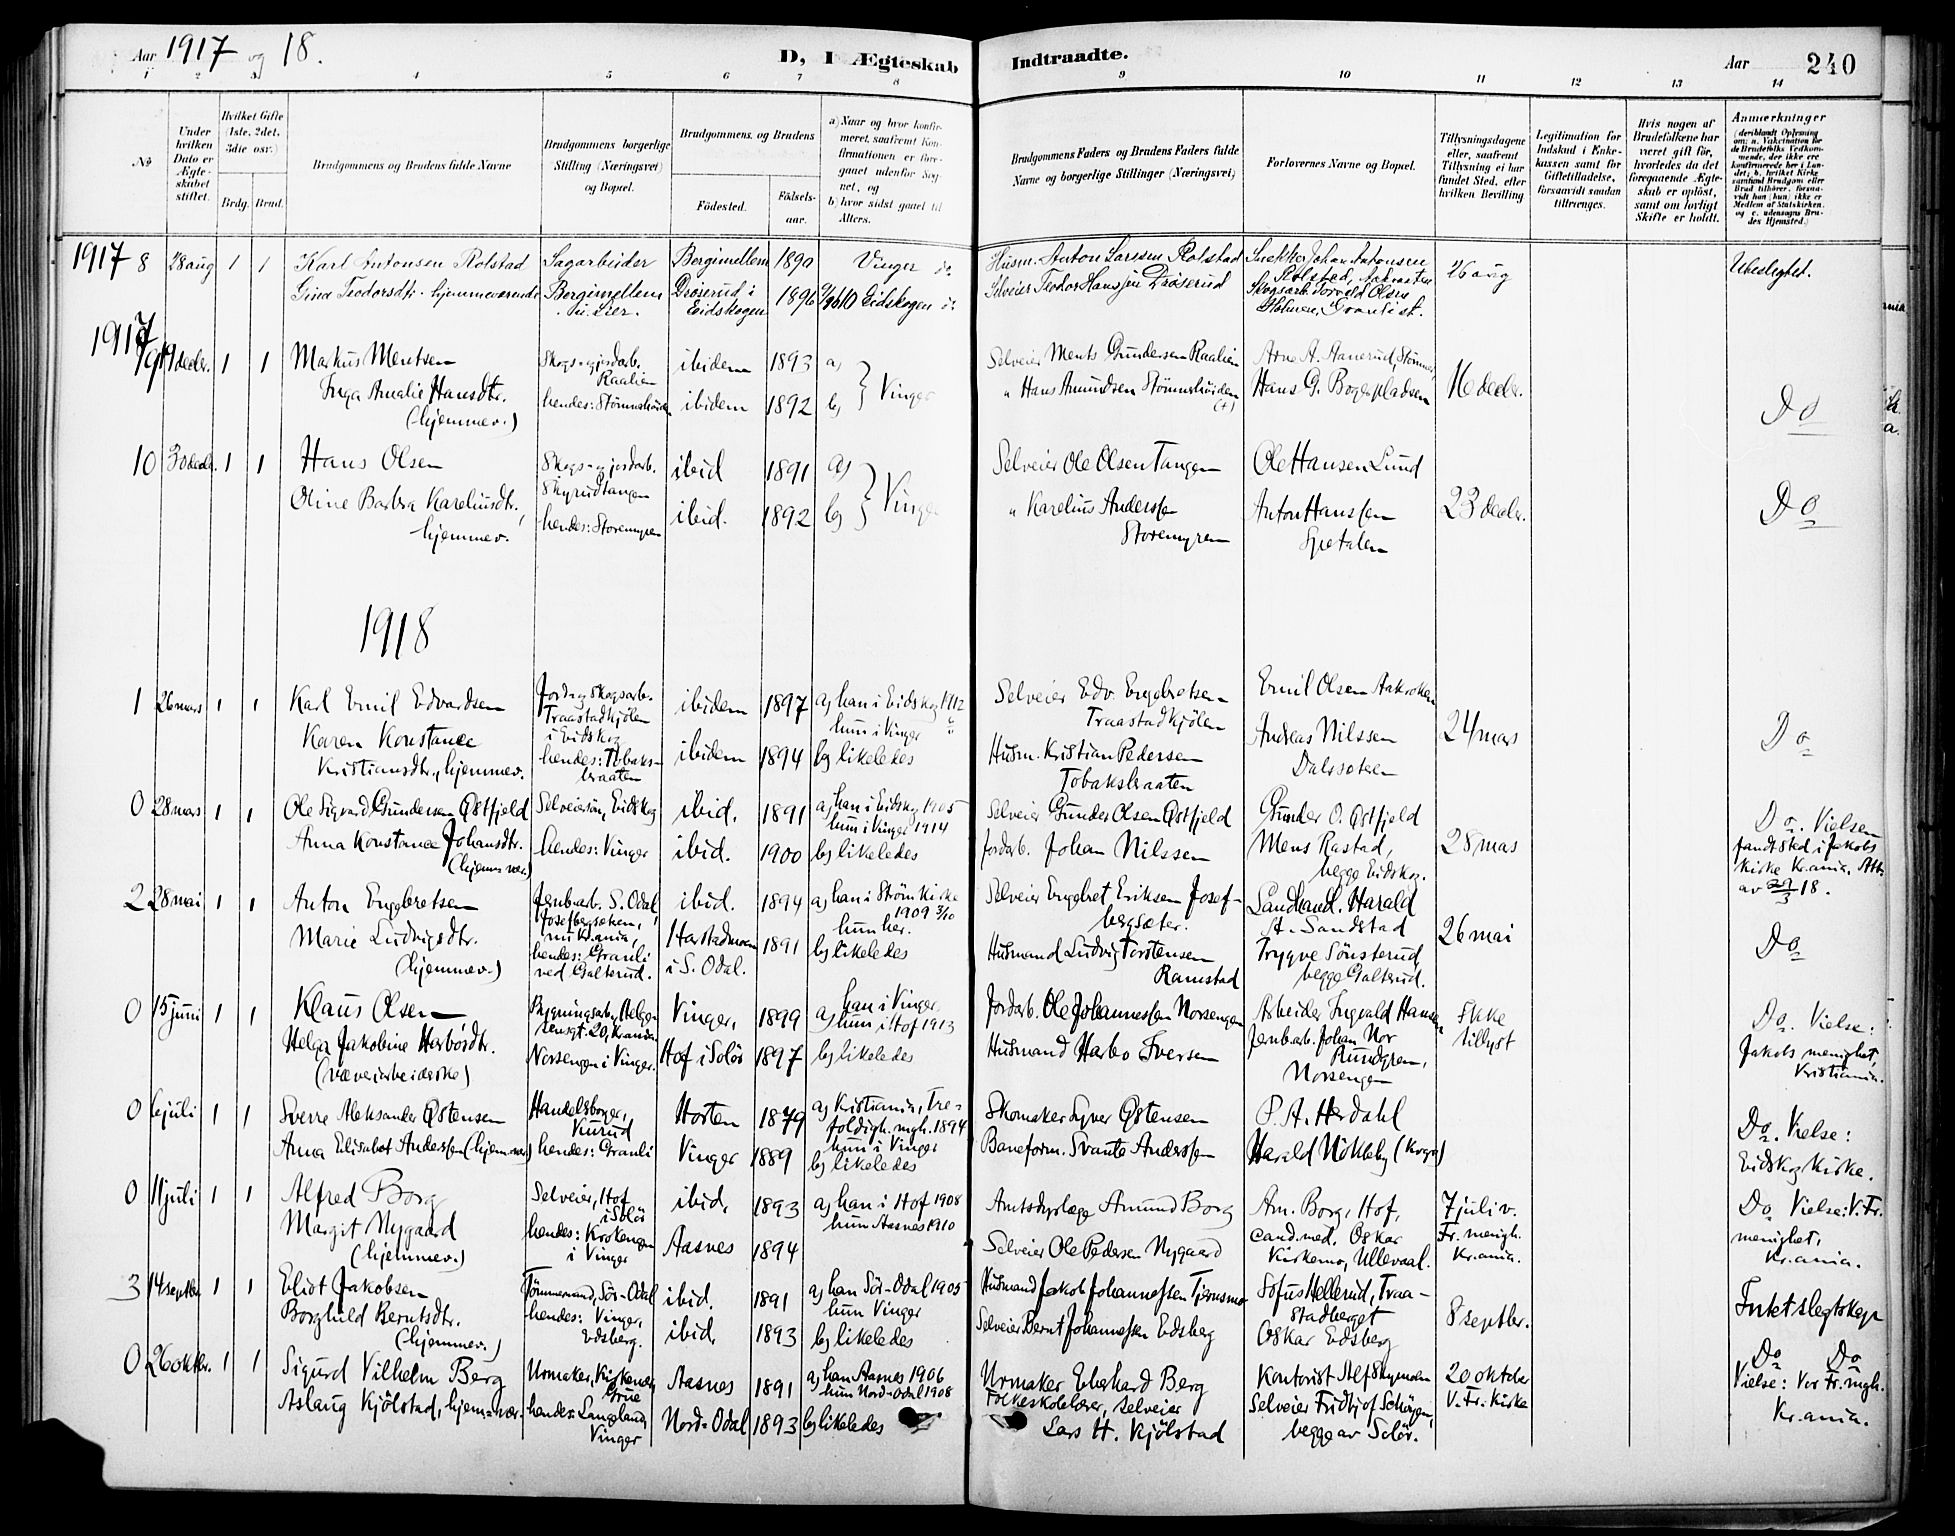 Aar 1917 og 18.
D, I Ægteskab Indtraadte.
Aar 240
1 2 3 4 5 6 7 8 9 10 11 12 13 14
No
Under hvilken Dato er Ægteskabet stiftet.
Hvilket Gifte (1ste, 2det, 3die osv.)
Brdg. Brud.
Brudgommens og Brudens fulde Navne
Brudgommens borgerlige Stilling (Næringsvei) og Bopæl.
Brudgommens og Brudens
Fødested.
Fødselsaar.
a) Naar og hvor konfirmeret, saafremt Konfirmationen er foregaaet udenfor Sognet, og
b) hvor sidst gaaet til Alters.
Brudgommens Faders og Brudens Faders fulde Navne og borgerlige Stillinger (Næringsvei)
Forlovernes Navne og Bopæl.
Tillysningsdagene eller, saafremt Tillysning ei har fundet Sted, efter hvilken Bevilling
Legitimation for Indskud i Enkekassen samt for Giftetilladelse, forsaavidt saadan tiltrænges.
Hvis nogen af Brudefolkene har været gift før, hvorledes da det foregaaende Ægteskab er opløst, samt om lovligt Skifte er holdt.
Anmerkninger
1917 8 28 aug 1 1
Karl Antonsen Rolstad
Gina Teodorsdtr. hjemmeværende
Sagarbeider
Bergimellem
Bergimellem 1890
Drøserud i Eidskogen 1896
Vinger
Eidskogen
Husm. Anton Larssen Rolstad
Selveier Teodor Hanssen Drøserud
Snekker Johan Antonsen
Rolstad,
Skogsarb. Torvald Olsen
26 aug
Ubeslegtet.
1917
9 1 1
Markus Mentsen
Inga Amalie Hansdtr.
(hjemmev.)
Skogs- og jordarb.
Raalien
hendes: Strømshøiden
ibidem 1893 a)
ibidem 1892 b) } Vinger
Selveier Ments Gundersen Raalien
" Hans Amundsen Strømshøiden
(+)
Arne A. Aanerud, Strømm,
Hans G. Bogerpladsen
16 decbr.
Do
10 30 decbr. 1 1
Hans Olsen
Oline Barbra Kareliusdtr.,
hjemmev.
Skogs- og jordarb.
Skyrudtangen
hendes: Storemyren
ibid 1891 a)
ibid. 1892 b) } Vinger
Selveier Ole Olsen Tangen
" Karelius Anderssen
Storemyren
Ole Hansen Lund
Anton Hanssen
Spetalen
23 decbr.
Do
1918
1 26 mars 1 1
Karl Emil Edvardsen
Karen Konstance
Kristiansdtr., hjemmev.
Jord- og Skogsarb.
Traastadkjølen
i Eidskog
hendes: Tobaks-
braaten
ibidem 1897
ibidem 1894
a) han i Eidskog 1912
hun i Vinger
b) likeledes
Selveier Edv. Engebretsen
Traastadkjølen
Husm. Kristian Pedersen
Tobaksbraaten
Emil Olsen Aakroken
Andreas Nilssen
24 mars
Do
0 28 mars 1 1
Ole Sigvard Gundersen Østfjeld
Anna Konstance Johansdtr.
(hjemmevær.)
Selveiersøn, Eidskog
hendes: Vinger
ibid. 1891
ibid. 1900
a) han i Eidskog 1905
hun i Vinger 1914
b) likeledes
Selveier Gunder Olsen Østfjeld
Jordarb. Johan Nilssen
Gunder O. Østfjeld
Mens Rastad,
begge Eidskog.
28 mars
Do. Vielsen
fandt sted i Jakobs
kirke Kr.ania, Att.
av 18.
2 28 mai 1 1
Anton Engebretsen
Marie Ludvigsdtr.
(hjemmev.)
Jernb.arb. S. Odal
nu Kr.ania,
hendes: Granli
ved Galterud.
ibid. 1894
Harstadmoen i S. Odal. 1891
a) han i Strøm kirke
1909 3/10
hun her.
b) likeledes
Selveier Engebret Eriksen Josef-
bergsæter.
Husmand Ludvig Torstensen
Ramstad
Landhand. Harald
A. Sandstad
Trygve Sønsterud,
begge Galterud.
26 mai
Do
0 15 juni 1 1
Klaus Olsen
Helga Jakobine Harbosdtr.
(væveiarbeiderske)
Bygningsarb., Helge-
sensgt. 20, Kr.ania
Norsengen i Vinger.
Vinger, 1899
Hof i Solør 1897
a) han i Vinger,
hun i Hof 1913
b) likeledes
Jordarb. Ole Johannessen Norsengen
Husmand Harbo Iversen
Arbeider Ingvald Hansen
Jernb.arb. Johan Nor
Rundgren,
Norsengen
Ikke
tillyst
Do. Vielse:
Jakobs menighet,
Kristiania.
0 6 juli 1 1
Sverre Aleksander Østensen
Anna Elisabet Anderssen (hjemmev.)
Handelsborger,
hendes: Granli
Horten 1879
Vinger 1889
a) Kristiania, Tre-
foldigh. mgh. 1894
hun i Vinger
b) likeledes
Skomaker Syver Østensen
Baneform. Svante Anderssen
P. A. Herdahl
Harald Nökleby
Do. Vielse:
Eidskog kirke.
0 11 juli 1 1
Alfred Borg
Margit Nygaard
(hjemmev.)
Selveier, Hof
i Solør
hendes: Krokengen
i Vinger
ibid. 1893
Aasnes 1894
a) han i Hof 1908
hun Aasnes 1910
Amtsdyrlæge Amund Borg
Selveier Ole Pedersen Nygaard
Am. Borg, Hof,
cand. med. Oskar
Kirkemo, Ullevaal.
7 juli v.
Fr. menigh.
Kr.ania.
Do Vielse: V. Fr.
menighet,
Kr.ania.
3 14 septbr. 1 1
Eliot Jakobsen
Borghild Berntsdtr.
(hjemmev.)
Tømmermand, Sør-Odal
hendes: Vinger,
Edsberg.
ibid. 1891
ibid. 1893
a) han Sør-Odal 1905
hun Vinger
b) likeledes
Husmand Jakob Johannessen Tjernsmo
Selveier Bernt Johannessen Edsberg
Sofus Hellerud, Traa-
stadberget
Oskar Edsberg
8 septbr.
Intet slegtskap
0 26 oktbr. 1 1
Sigurd Vilhelm Berg
Aslaug Kjölstad, hjemmevær.
Urmaker, Kirkenær,
Grue
hendes: Langland,
Vinger
Aasnes 1891
Nord-Odal 1893
a) han Aasnes 1906
hun Nord-Odal 1908
b) likeledes
Urmaker Eberhard Berg
Folkeskolelærer, selveier
Lars H. Kjölstad
Kontorist Alf Skymoen
Selveier Fridtjof Schøyen,
begge av Solør.
20 oktober
V. Fr. Kirke
Do Do
Vielse: Vor Fr. mgh.
Kr.ania.